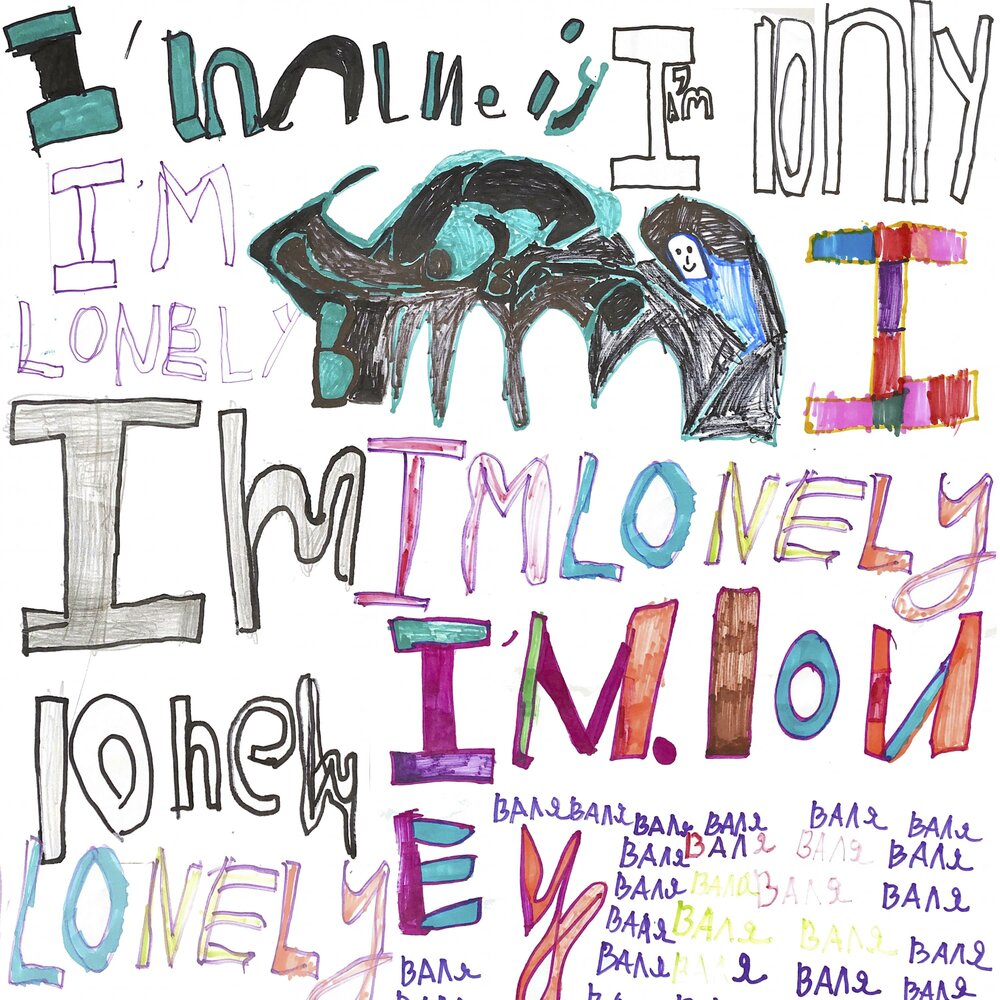 I lonly
I'M
LONELY
I
Im
lonely
LONELY
I'M LONELY
I'M. lON
EY
ВАЛЯ ВАЛЯ ВАЛЯ ВАЛЯ ВАЛЯ ВАЛЯ
ВАЛЯ ВАЛЯ ВАЛЯ ВАЛЯ
ВАЛЯ ВАЛЯ ВАЛЯ ВАЛЯ
ВАЛЯ ВАЛЯ ВАЛЯ ВАЛЯ
ВАЛЯ ВАЛЯ ВАЛЯ ВАЛЯ